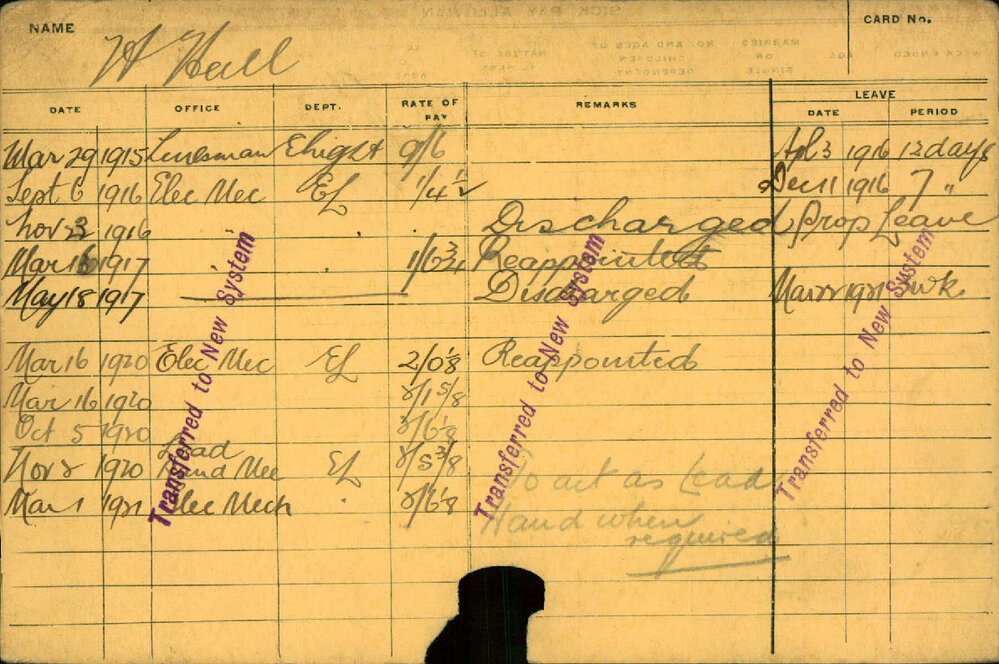 NAME
CARD No.
H Hall
DATE OFFICE DEPT. RATE OF PAY REMARKS LEAVE
DATE PERIOD
Mar 29 1915 Linesman 9/6 Apl 3 1916 12 days
Sept 6 1916 Elec Mec EL 1/4½ Dec 11 1916 7 "
Nov 23 1916 " . Discharged Prop Leave
Mar 16 1917 " . 1/6¾ Reappointed
May 18 1917 Discharged Mar 22 1921 wk
Mar 16 1920 Elec Mec EL 2/0⅛ Reappointed
Mar 16 1920 2/1⅝
Oct 5 1920 2/6⅛
Nov 2 1920 Lead Hand Mec EL 2/5⅜ To act as Lead
Mar 1 1921 Elec Mech " 2/6⅛ Hand when
required
Transferred to New System
Transferred to New System
Transferred to New System